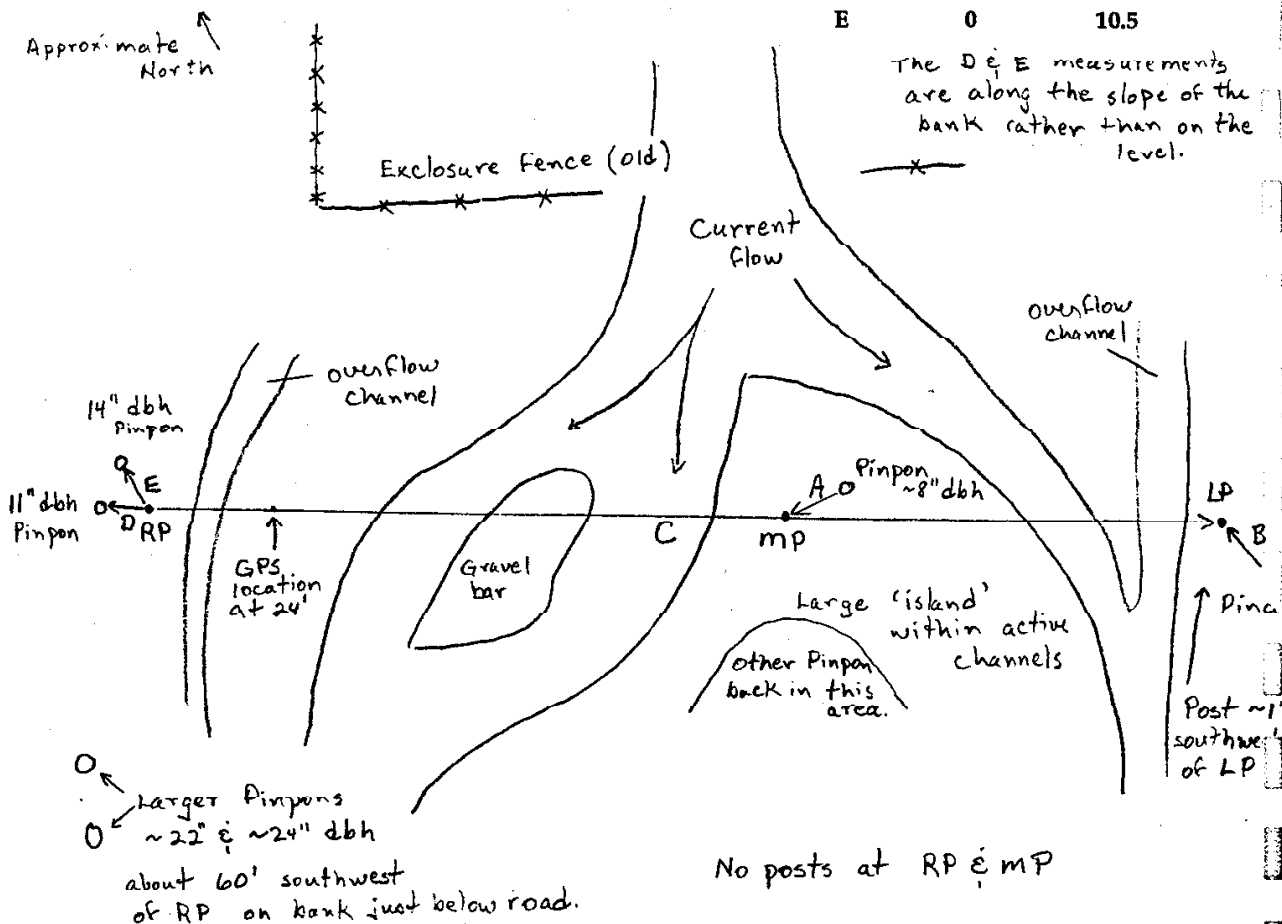 E 0 10.5
Approximate
North
The D & E measurements
are along the slope of the
bank rather than on the
level.
Exclosure Fence (old)
Current
flow
overflow
channel
overflow
channel
14" dbh
Pinpon
E
11" dbh
Pinpon
D RP
GPS
location
at 24'
Gravel
bar
C
A
Pinpon
~8" dbh
mp
LP
B
Large 'island'
within active
channels
other Pinpon
back in this
area.
Post ~1'
of LP
Larger Pinpons
~22" & ~24" dbh
about 60' southwest
of RP on bank just below road.
No posts at RP & mp